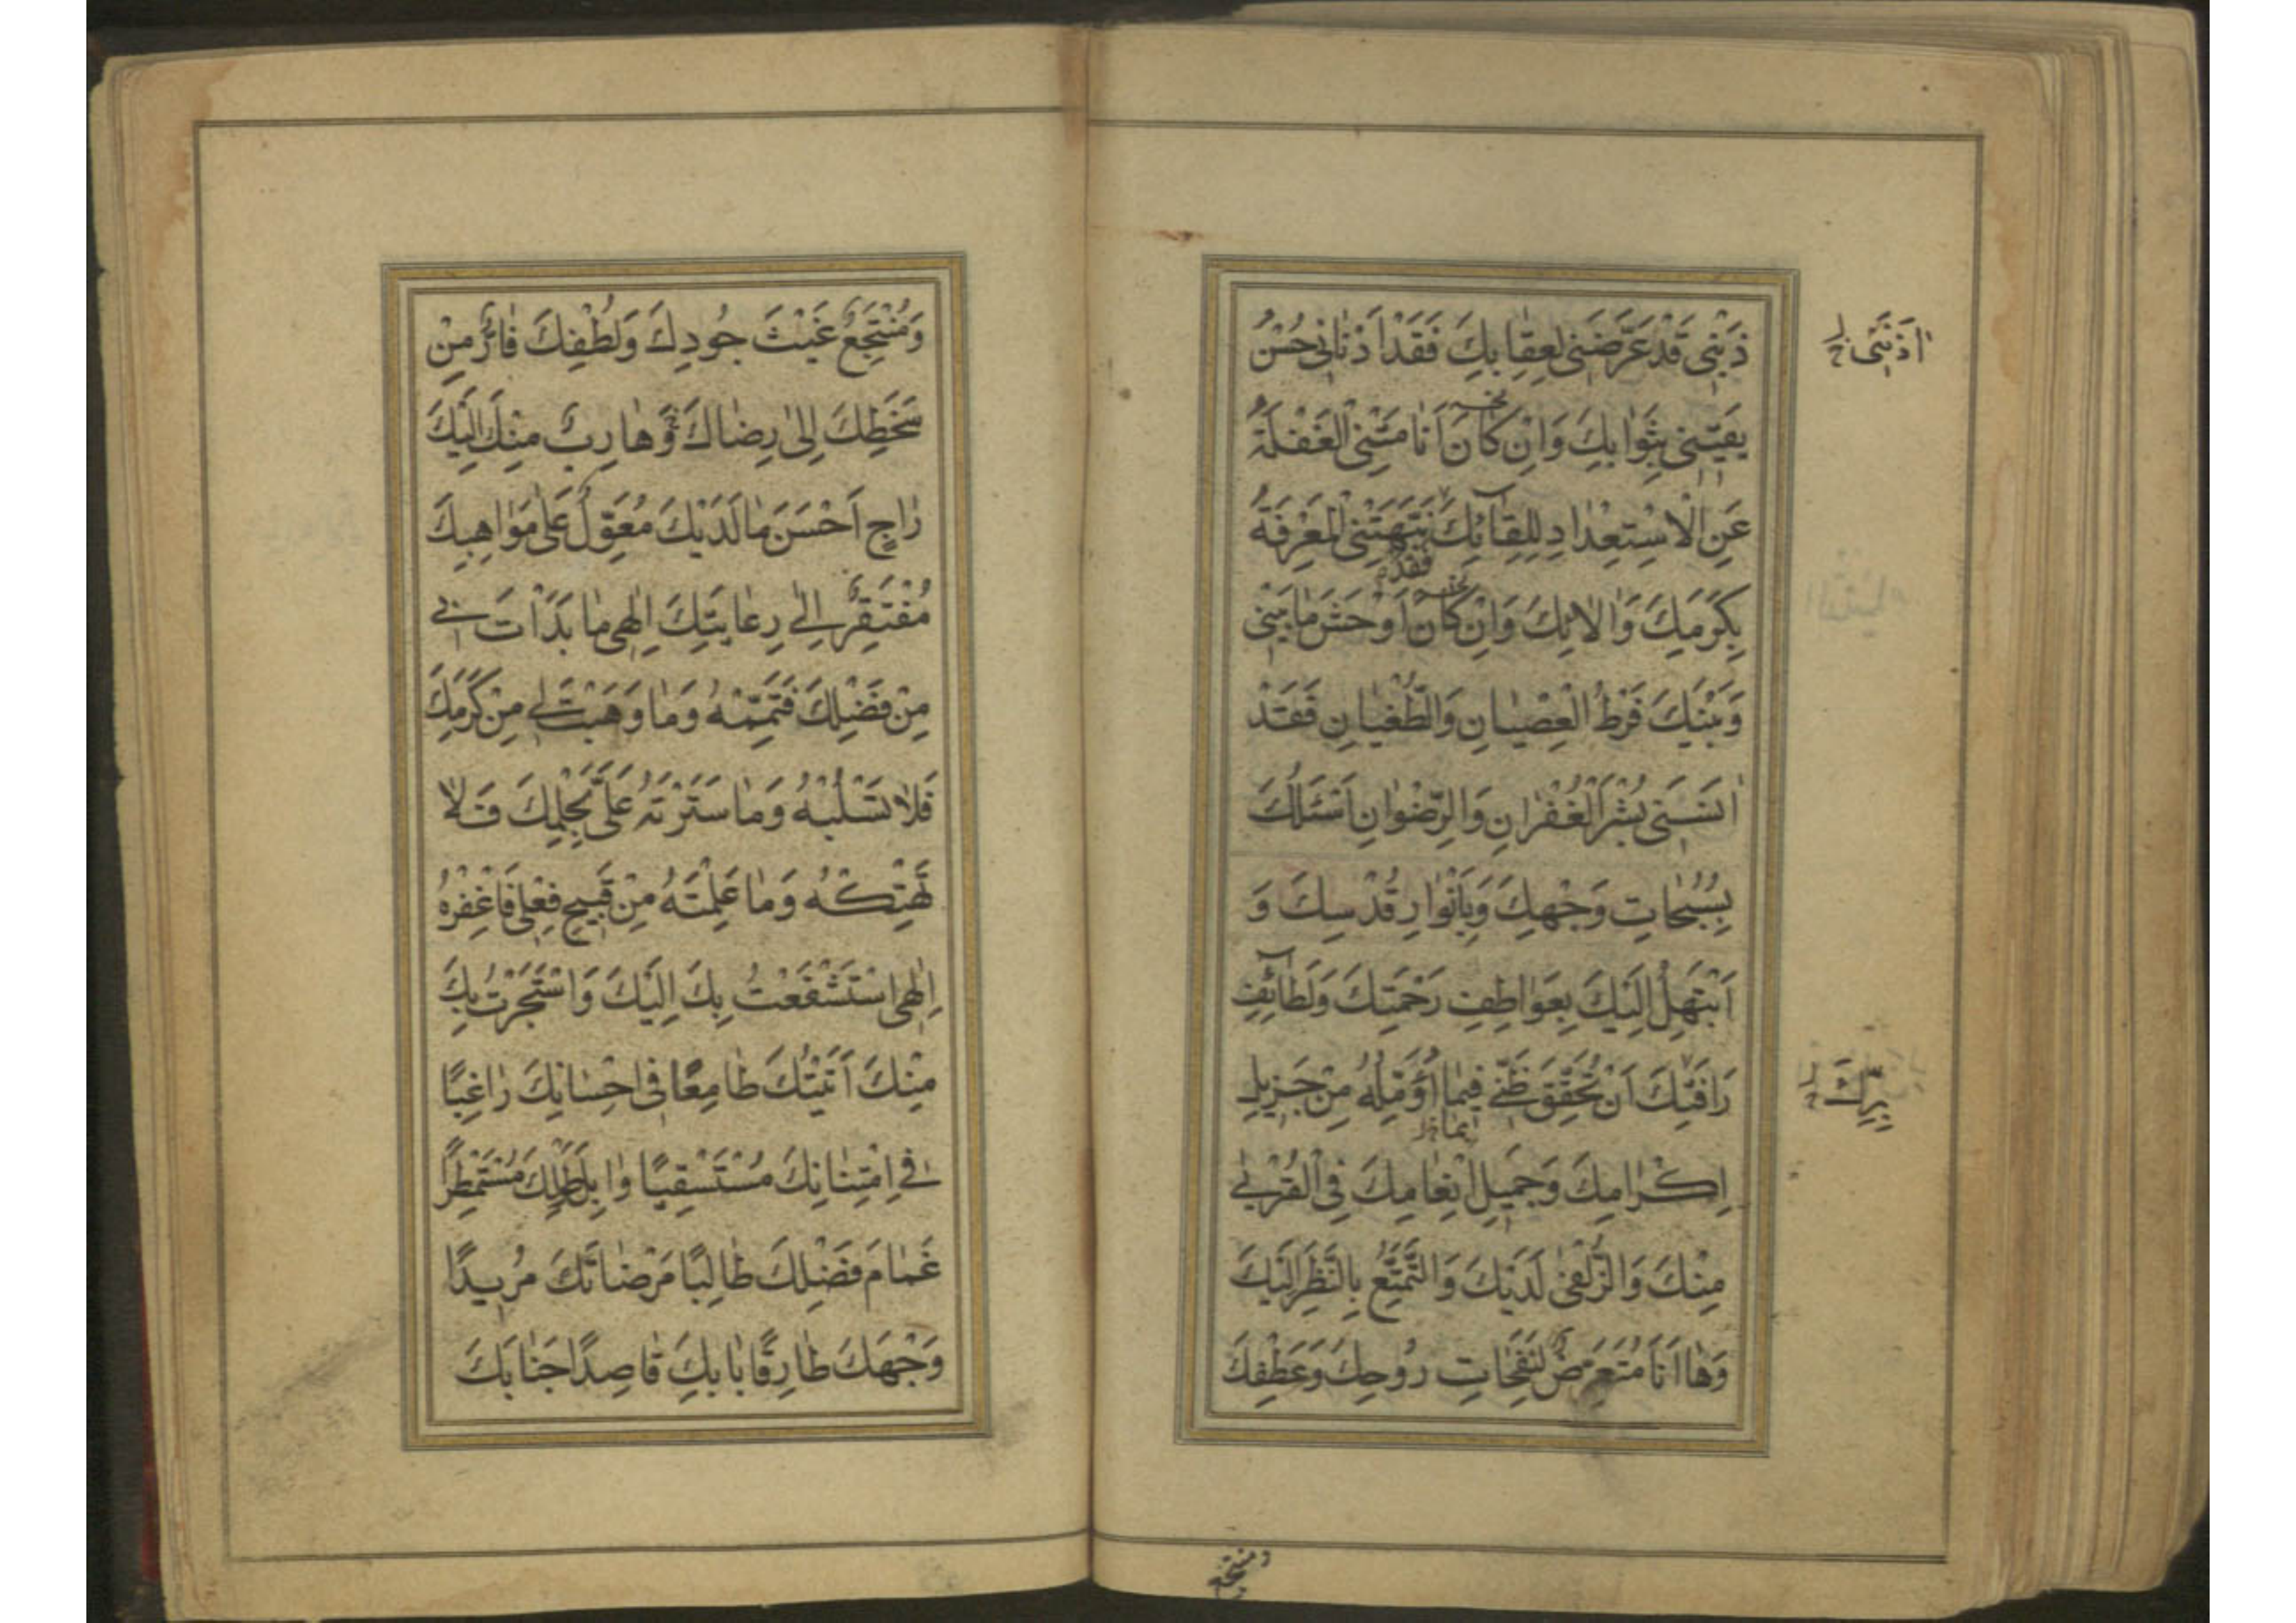 ذَنْبِی قَدْ عَرَّضَنِی لِعِقٰابِكَ فَقَدْ اَذْنٰانِی حُسْنُ
اٰذَنَنِی خ ل
یَقِیْنِی بِثَوٰابِكَ وَاِنْ كٰانَ اَنٰامَتْنِی الْغَفْلَةُ
عَنِ الْاِسْتِعْدٰادِ لِلِقٰآئِكَ نَبَّهَتْنِی الْمَعْرِفَةُ
فَقَدْ
بِكَرَمِكَ وَاٰلاٰئِكَ وَاِنْ كٰانَ اَوْحَشَ مٰا بَیْنِی
وَبَیْنَكَ فَرْطُ الْعِصْیٰانِ وَالطُّغْیٰانِ فَقَدْ
اٰنَسَنِی بُشْرَ الْغُفْرٰانِ وَالرِّضْوٰانِ اَسْئَلُكَ
بِسُبُحٰاتِ وَجْهِكَ وَبِاَنْوٰارِ قُدْسِكَ وَ
اَبْتَهِلُ اِلَیْكَ بِعَوٰاطِفِ رَحْمَتِكَ وَلَطٰآئِفِ
رَافَتِكَ اَنْ تُحَقِّقَ ظَنِّی فِیمٰا اُؤَمِّلُهُ مِنْ جَزِیلِ
بِرِّكَ خ ل
بِمٰا خ ل
اِكْرٰامِكَ وَجَمِیلِ اِنْعٰامِكَ فِی الْقُرْبٰی
مِنْكَ وَالزُّلْفٰی لَدَیْكَ وَالتَّمَتُّعِ بِالنَّظَرِ اِلَیْكَ
وَهٰا اَنَا مُتَعَرِّضٌ لِنَفَحٰاتِ رُوحِكَ وَعَطْفِكَ
ومنتجع
وَمُنْتَجِعٌ غَیْثَ جُودِكَ وَلُطْفِكَ فٰارٌّ مِنْ
سَخَطِكَ اِلٰی رِضٰاكَ وَهٰارِبٌ مِنْكَ اِلَیْكَ
رٰاجٍ اَحْسَنَ مٰا لَدَیْكَ مُعَوِّلٌ عَلٰی مَوٰاهِبِكَ
مُفْتَقِرٌ اِلٰی رِعٰایَتِكَ اِلٰهِی مٰا بَدَاْتَ بِی
مِنْ فَضْلِكَ فَتَمِّمْهُ وَمٰا وَهَبْتَ لِی مِنْ كَرَمِكَ
فَلاٰ تَسْلُبْهُ وَمٰا سَتَرْتَهُ عَلَیَّ بِحِلْمِكَ فَلاٰ
تَهْتِكْهُ وَمٰا عَلِمْتَهُ مِنْ قَبِیحِ فِعْلِی فَاغْفِرْهُ
اِلٰهِی اسْتَشْفَعْتُ بِكَ اِلَیْكَ وَاسْتَجَرْتُ بِكَ
مِنْكَ اَتَیْتُكَ طٰامِعًا فِی اِحْسٰانِكَ رٰاغِبًا
فِی اِمْتِنٰانِكَ مُسْتَسْقِیًا وٰابِلَ طَوْلِكَ مُسْتَمْطِرًا
غَمٰامَ فَضْلِكَ طٰالِبًا مَرْضٰاتَكَ مُرِیدًا
وَجْهَكَ طٰارِقًا بٰابَكَ قٰاصِدًا جَنٰابَكَ